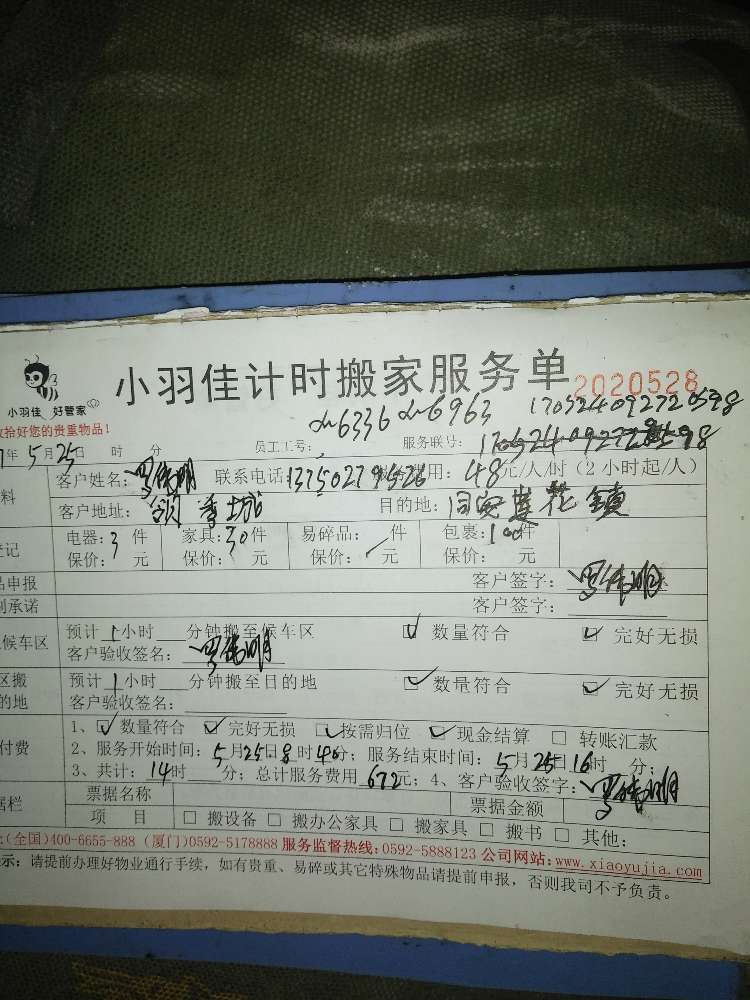 小羽佳计时搬家服务单 2020528
小羽佳 好管家
收拾好您的贵重物品！
工6336 工6963 170524092720598
员工工号： 服务联号：
年5月25日 时 分
客户姓名： 联系电话：13750279526 用：48元/人/时（2小时起/人）
客户地址： 目的地：同安莲花镇
电器：3件 家具：30件 易碎品： 件 包裹：100件
登记
保价： 元 保价： 元 保价： 元 保价： 元
品申报 客户签字：罗伟明
别承诺 客户签字：
预计1小时 分钟搬至候车区 ☑ 数量符合 ☑ 完好无损
候车区
客户验收签名：罗伟明
区搬 预计1小时 分钟搬至目的地 ☑ 数量符合 ☑ 完好无损
的地 客户验收签名：
1、☑ 数量符合 ☑ 完好无损 ☑ 按需归位 ☑ 现金结算 □ 转账汇款
付费 2、服务开始时间：5月25日8时40分；服务结束时间：5月25日16时 分；
3、共计：14时 分；总计服务费用672元；4、客户验收签字：罗伟明
票据名称 票据金额
据栏 项 目 □ 搬设备 □ 搬办公家具 □ 搬家具 □ 搬书 □ 其他：
(全国)400-6655-888 (厦门)0592-5178888 服务监督热线：0592-5888123 公司网站：www.xiaoyujia.com
示：请提前办理好物业通行手续，如有贵重、易碎或其它特殊物品请提前申报，否则我司不予负责。